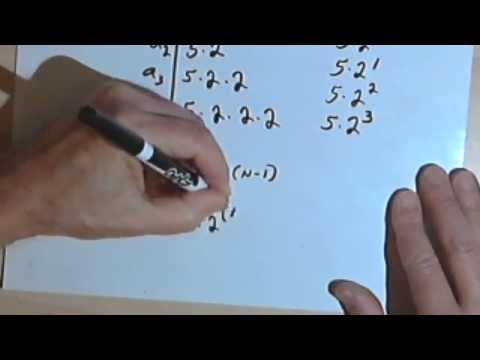 a₂ 5·2 5·2
a₃ 5·2·2 5·2¹
5·2·2·2 5·2²
5·2³
(N-1)
·2⁽